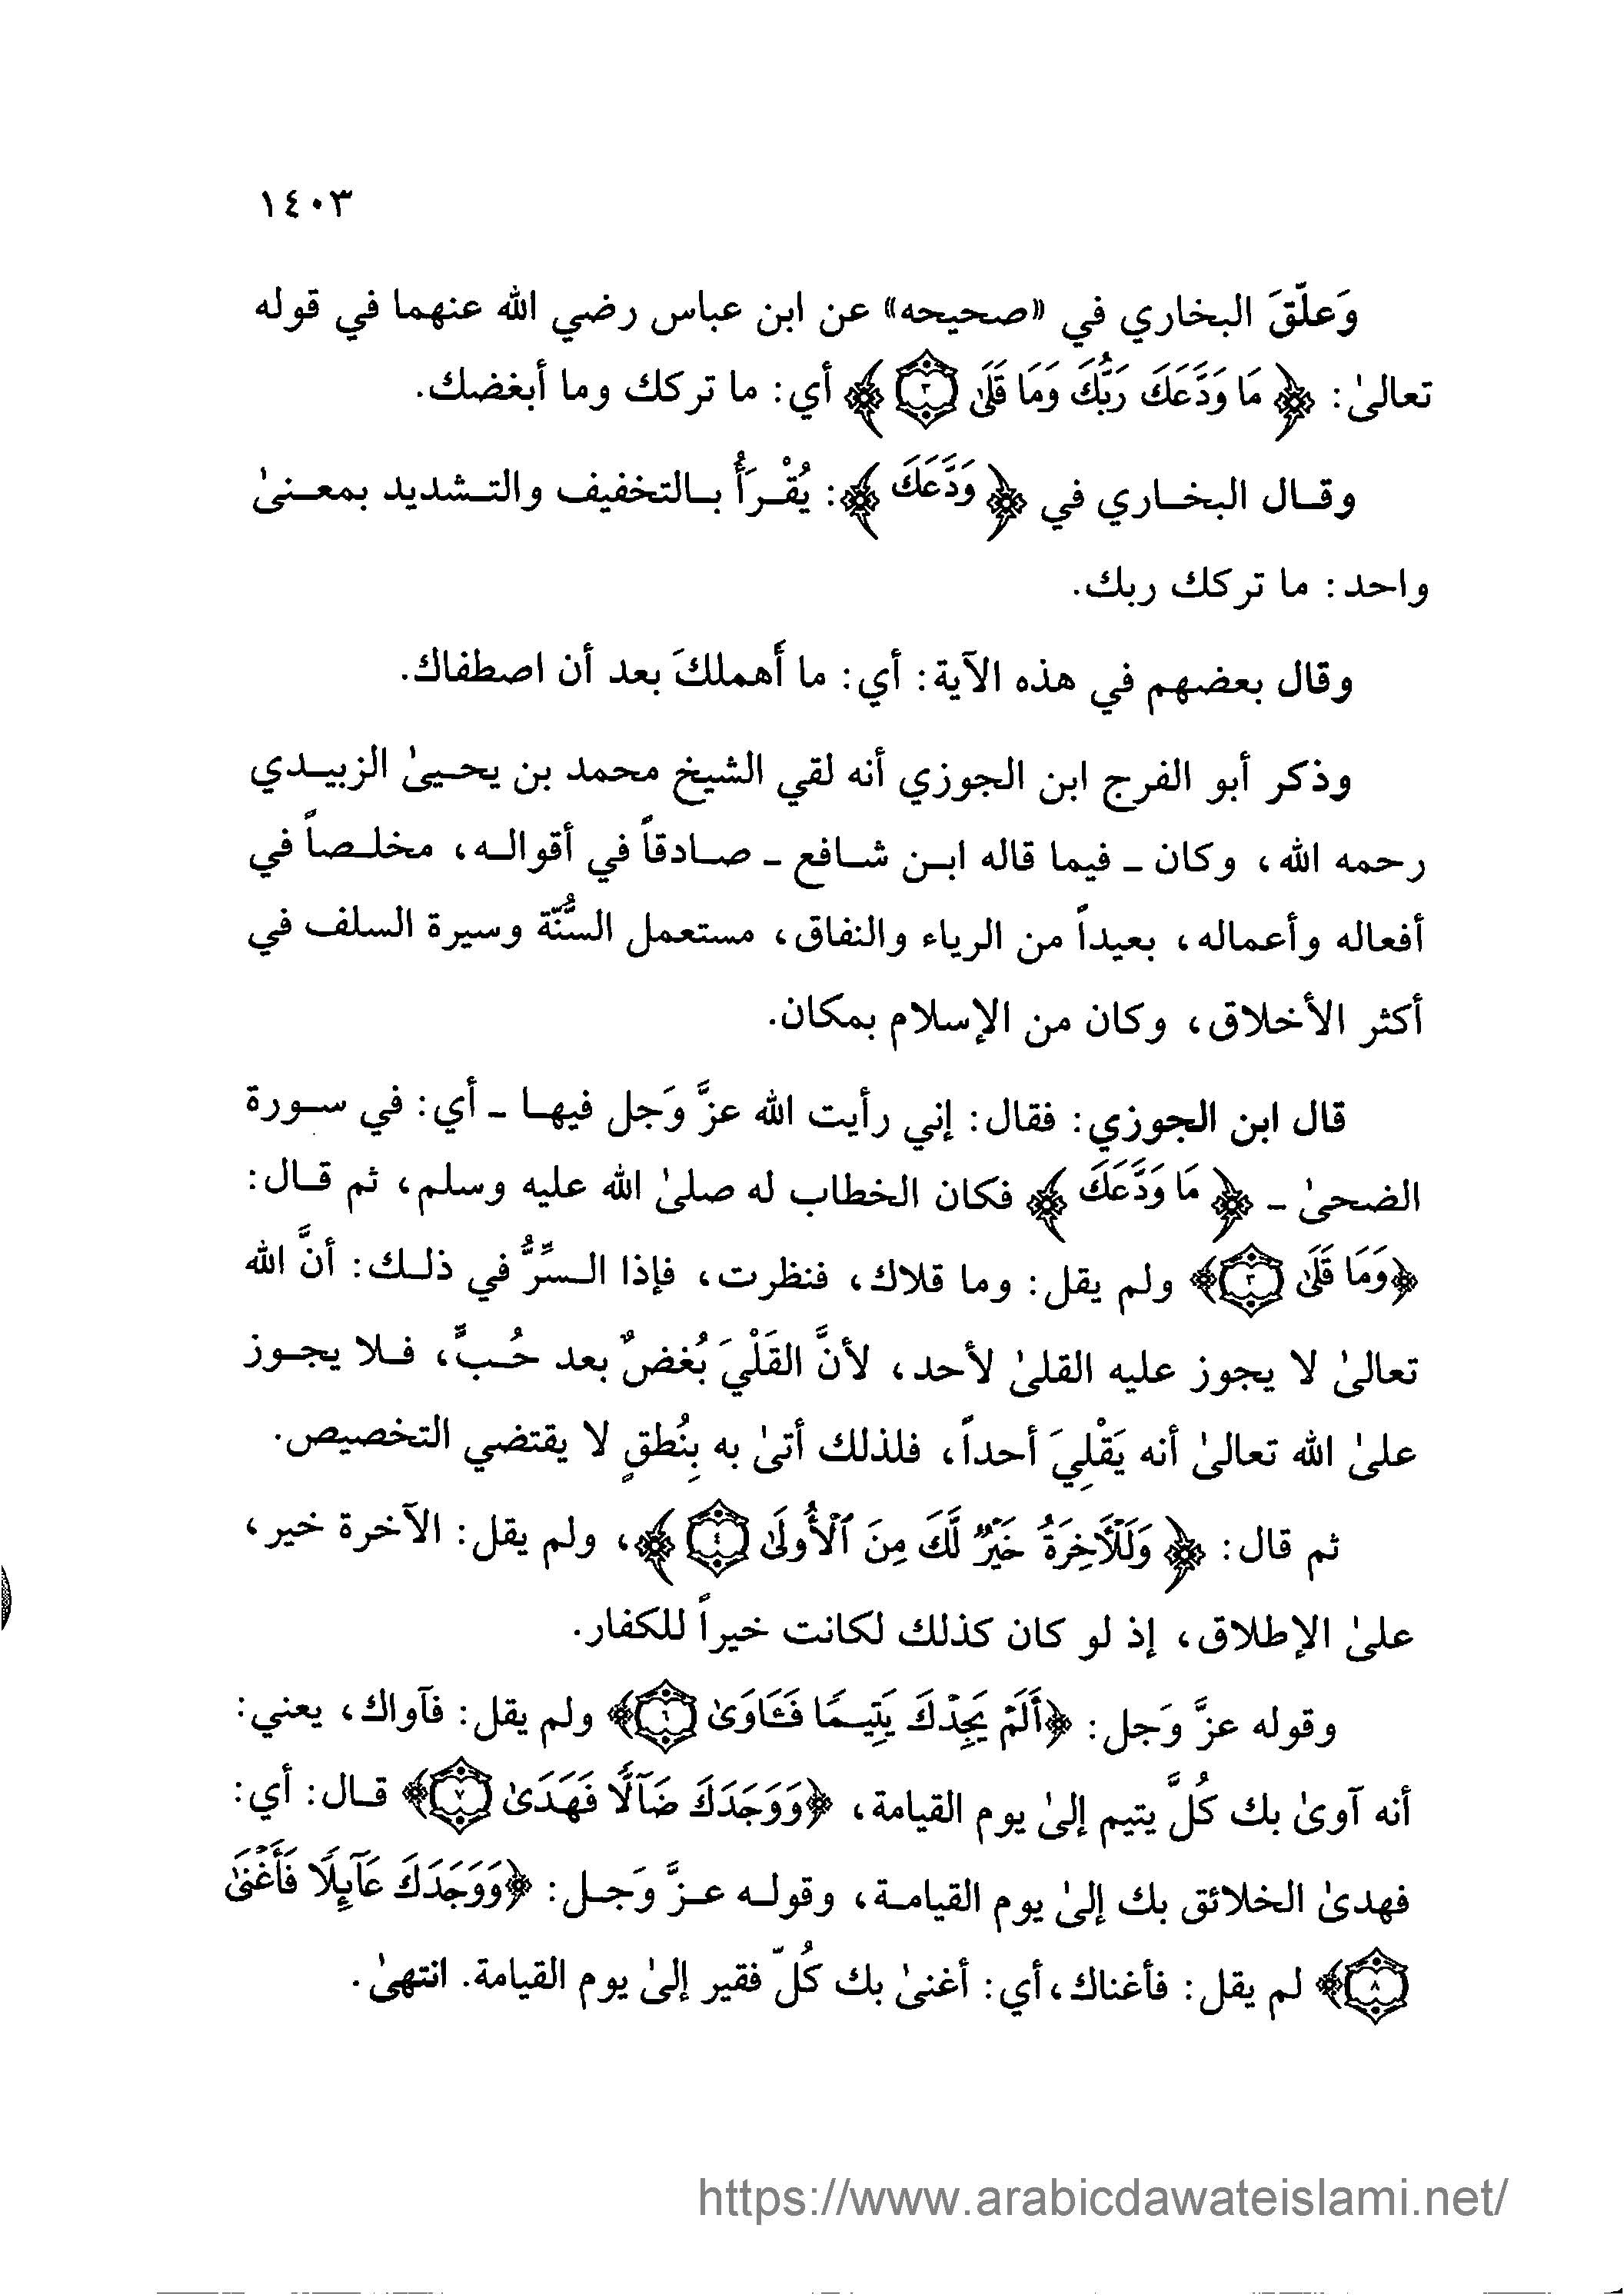 ١٤٠٣
وَعلّقَ البخاري في «صحيحه» عن ابن عباس رضي الله عنهما في قوله
تعالىٰ: ﴿مَا وَدَّعَكَ رَبُّكَ وَمَا قَلَىٰ ٣﴾ أي: ما تركك وما أبغضك.
وقـال البخـاري في ﴿وَدَّعَكَ﴾: يُقْـرَأُ بـالتخفيف والتـشديد بمعـنىٰ
واحد: ما تركك ربك.
وقال بعضهم في هذه الآية: أي: ما أَهملكَ بعد أن اصطفاك.
وذكر أبو الفرج ابن الجوزي أنه لقي الشيخ محمد بن يحـيىٰ الزبيـدي
رحمه الله، وكان ـ فيما قاله ابـن شـافع ـ صـادقاً في أقوالـه، مخلـصاً في
أفعاله وأعماله، بعيداً من الرياء والنفاق، مستعمل السُّنّة وسيرة السلف في
أكثر الأخلاق، وكان من الإسلام بمكان.
قال ابن الجوزي: فقال: إني رأيت الله عزَّ وَجل فيهـا ـ أي: في سـورة
الضحىٰ ـ ﴿مَا وَدَّعَكَ﴾ فكان الخطاب له صلىٰ الله عليه وسلم، ثم قـال:
﴿وَمَا قَلَىٰ ٣﴾ ولم يقل: وما قلاك، فنظرت، فإذا الـسِّرُّ في ذلـك: أنَّ الله
تعالىٰ لا يجوز عليه القلىٰ لأحد، لأنَّ القَلْيَ بُغضٌ بعد حُـبٍّ، فـلا يجـوز
علىٰ الله تعالىٰ أنه يَقْلِيَ أحداً، فلذلك أتىٰ به بِنُطقٍ لا يقتضي التخصيص.
ثم قال: ﴿وَلَلْآخِرَةُ خَيْرٌ لَّكَ مِنَ ٱلْأُولَىٰ ٤﴾، ولم يقل: الآخرة خير،
علىٰ الإطلاق، إذ لو كان كذلك لكانت خيراً للكفار.
وقوله عزَّ وَجل: ﴿أَلَمْ يَجِدْكَ يَتِيـمًا فَـَٔاوَىٰ ٦﴾ ولم يقل: فآواك، يعني:
أنه آوىٰ بك كُلَّ يتيم إلىٰ يوم القيامة، ﴿وَوَجَدَكَ ضَآلًّا فَهَدَىٰ ٧﴾ قـال: أي:
فهدىٰ الخلائق بك إلىٰ يوم القيامـة، وقولـه عـزَّ وَجـل: ﴿وَوَجَدَكَ عَآئِلًا فَأَغْنَىٰ
٨﴾ لم يقل: فأغناك، أي: أغنىٰ بك كُلّ فقير إلىٰ يوم القيامة. انتهىٰ.
https://www.arabicdawateislami.net/